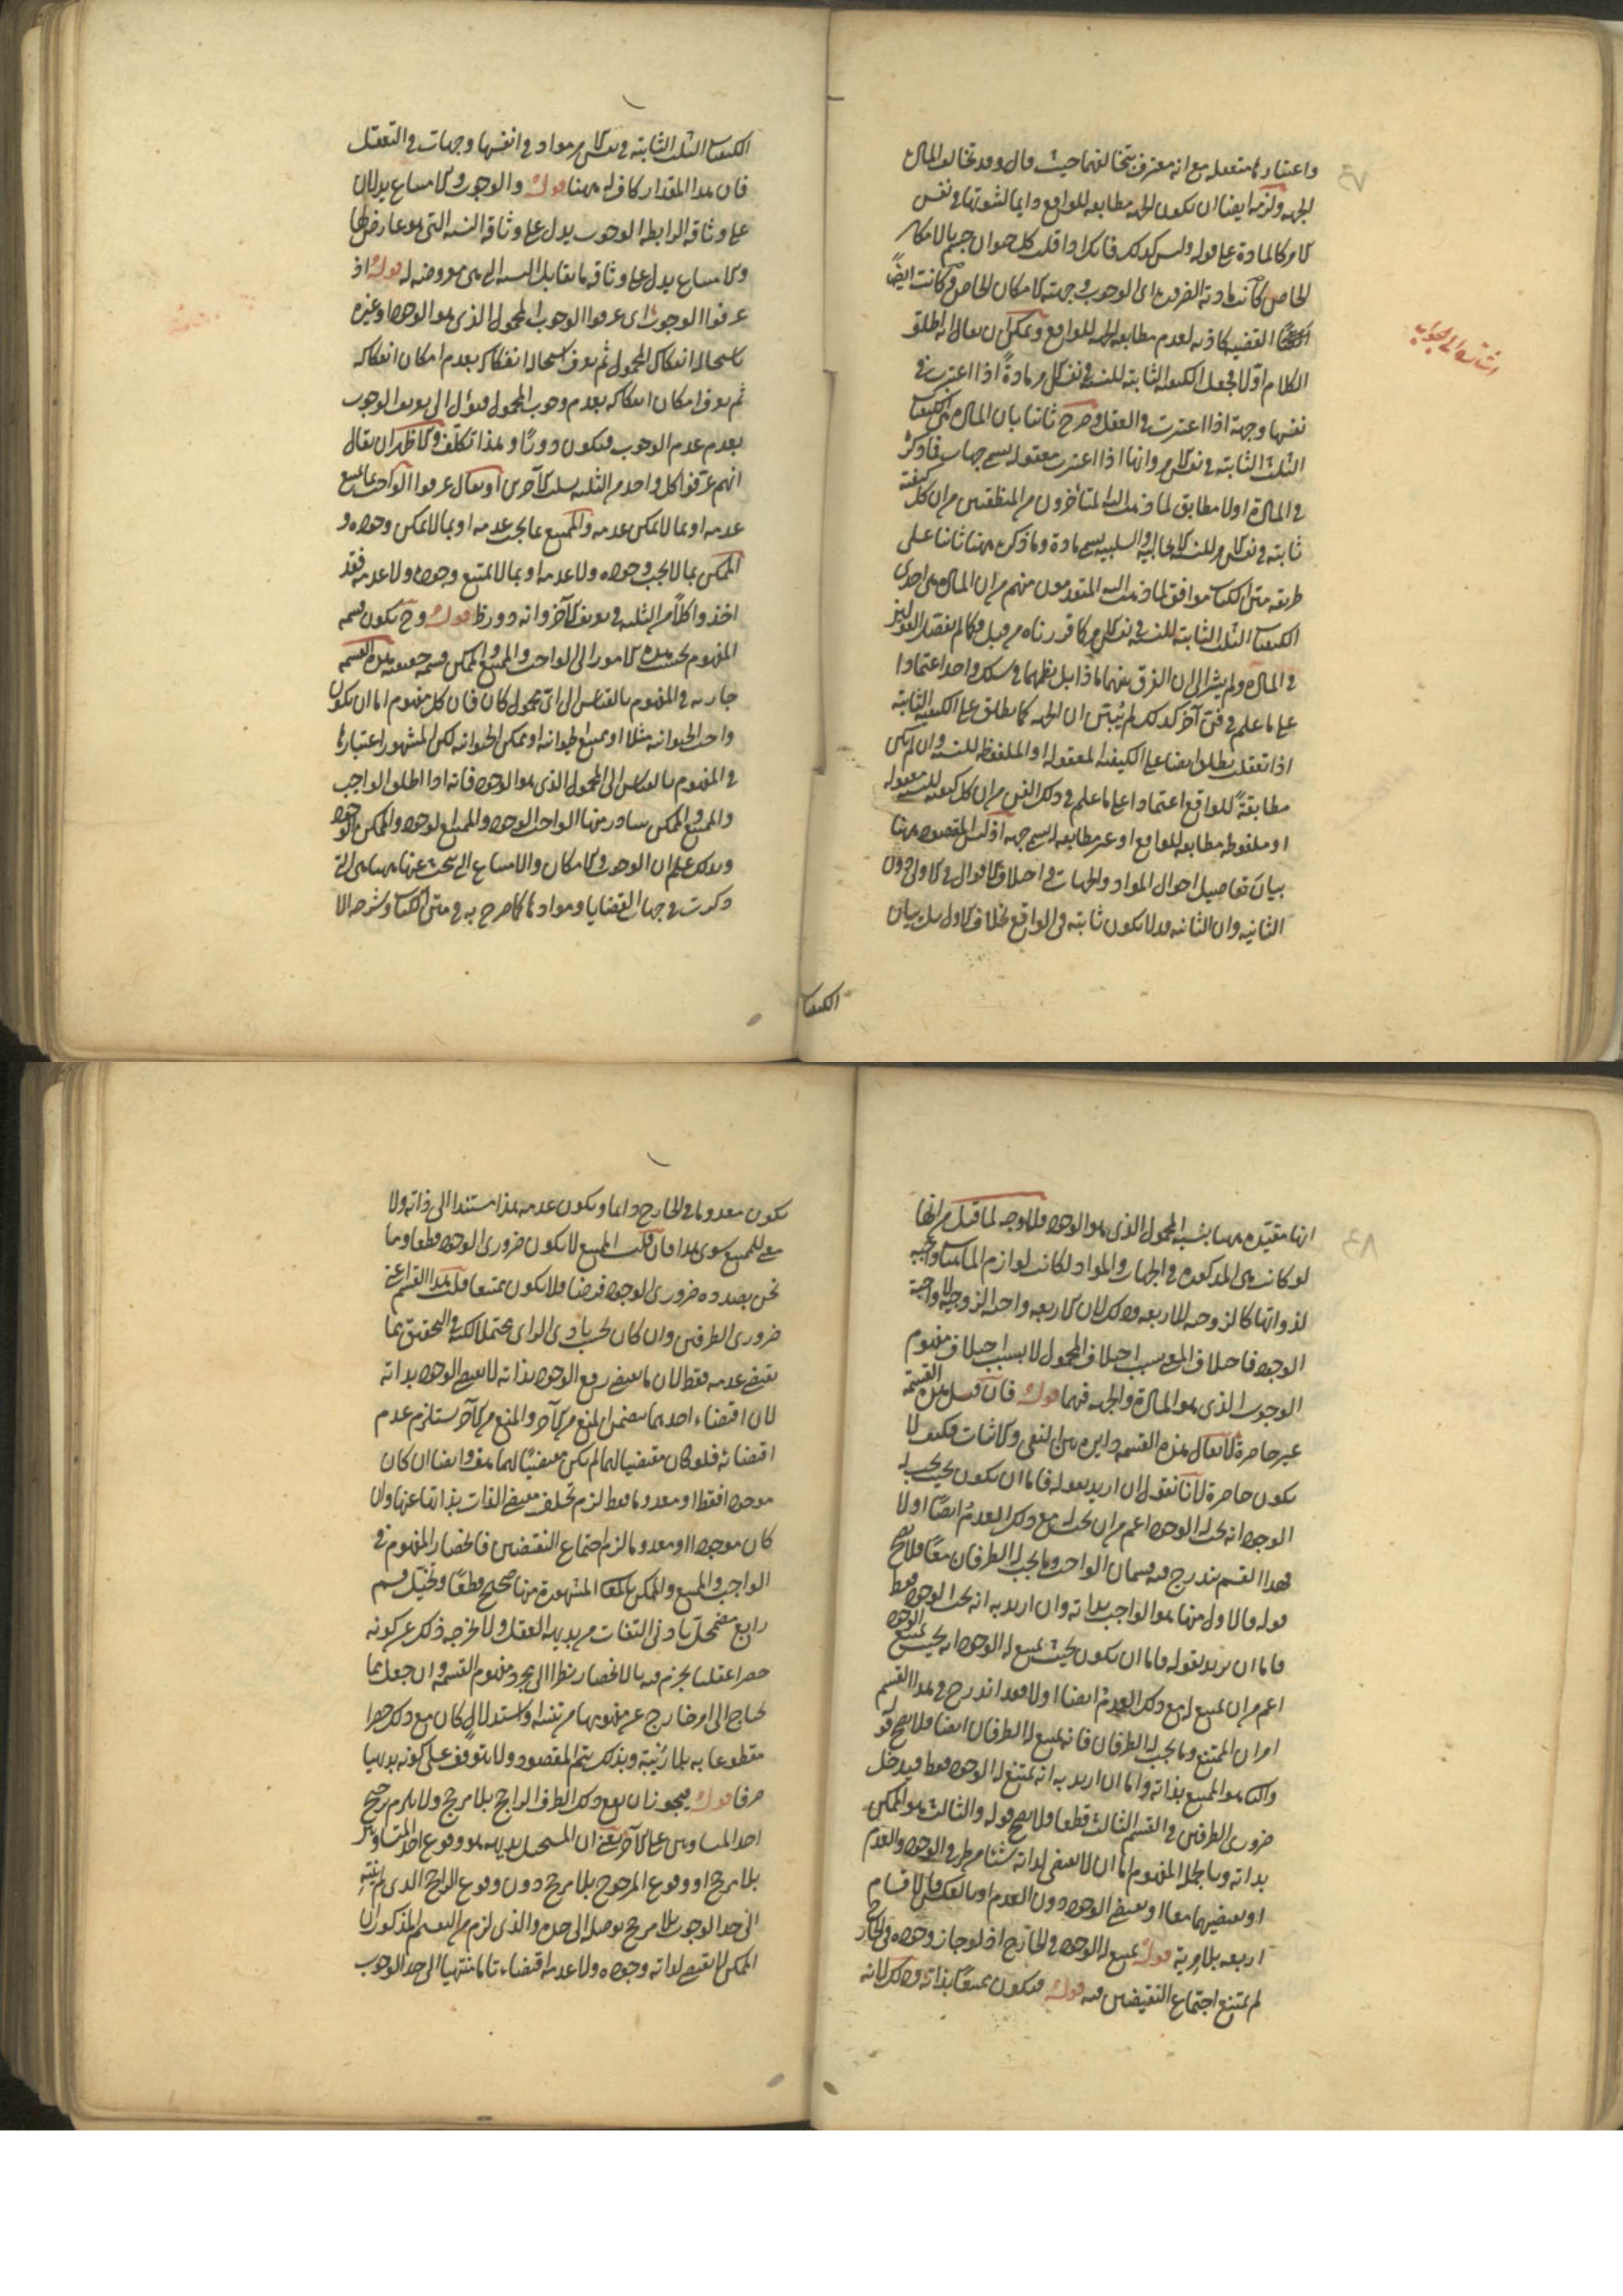 واعتبارها متعقله مع انه معترف بتخالفهما حيث قال وقد تخالف المادة
الجهه ولزمه ايضا ان تكون الجهه مطابقه للواقع دايما لثبوتها في نفس
الامر كالمادة على قوله وليس كذلك فانك اذا قلت كل حيوان جسم بالامكان
الخاص كانت مادته الضرورة اى الوجوب وجهته الامكان الخاص وكانت ايضا
القضيه كاذبه لعدم مطابقه الجهه للواقع ويمكن ان يقال انه اطلق
الكلام اولا فجعل الكيفيه الثابته للنسبه في نفس الامر مادة اذا اعتبرت في
نفسها وجهة اذا اعتبرت في العقل وصرح ثانيا بان المادة هي الكيفيات
الثلث الثابته في نفس الامر وانها اذا اعتبرت معقوله تسمى جهات فما ذكره
في المادة اولا مطابق لما ذهب اليه المتأخرون من المنطقيين من ان كل كيفية
ثابته في نفس الامر للنسب الايجابيه والسلبيه تسمى مادة وما ذكره ههنا ثانيا على
طريقه متن الكتاب موافق لما ذهب اليه المتقدمون منهم من ان المادة هي احدى
الكيفيات الثلث الثابته للنسبه في نفس الامر كما قررناه من قبل فكما لم يفصل القولين
في المادة ولم يشر الى ان الفرق بينهما ماذا بل نظمهما في سلك واحد اعتمادا
على ما علم في فن آخر كذلك لم يبين ان الجهه كما يطلق على الكيفيه الثابته
اذا تعقلت يطلق ايضا على الكيفيه المعقوله او الملفوظه للنسبه وان لم يكن
مطابقة للواقع اعتمادا على ما علم في ذلك الفن من ان كل كيفيه للنسبه معقوله
او ملفوظه مطابقه للواقع او غير مطابقه تسمى جهه اذ ليس المقصود ههنا
بيان تفاصيل احوال المواد والجهات في اختلاف الاقوال في الاولى دون
الثانيه وان الثانيه قد لا يكون ثابته في الواقع بخلاف الاولى بل بيان
اشاره الى الجواب
الكيفيات
الكيفيات الثلث الثابته في نفس الامر مواد في انفسها وجهات في التعقل
فان هذا المقدار كاف له ههنا قوله والوجوب والامتناع يدلان
على وثاقه الرابطه الوجوب يدل على وثاقه النسبه التى هو عارض لها
والامتناع يدل على وثاقه ما يقابل النسبه التى هي معروضه له قوله اذ
عرفوا الوجوب اى عرفوا الوجوب المحمول الذى هو الوجود او غيره
باستحاله انفكاك المحمول ثم يعرف استحاله انفكاكه بعدم امكان انفكاكه
ثم يعرف امكان انفكاكه بعدم وجوب المحمول فيؤل الى تعريف الوجوب
بعدم عدم الوجوب فيكون دوريا وهذا تكلف والاظهر ان يقال
انهم عرفوا كل واحد من الثلثه بسلب الآخرين او يقال عرفوا الواجب بما يمتنع
عدمه او بما لا يمكن عدمه والممتنع بما يجب عدمه او بما لا يمكن وجوده و
الممكن بما لا يجب وجوده ولا عدمه او بما لا يمتنع وجوده ولا عدمه فقد
اخذوا كلا من الثلثه في تعريف الآخر وانه دور ظ قوله وح تكون قسمه
المفهوم بحسب هذه الامور الى الواجب والممتنع والممكن قسمه حقيقيه هذه القسمه
جاريه في المفهوم بالقياس الى اى محمول كان فان كل مفهوم اما ان يكون
واجب الحيوانيه مثلا او ممتنع الحيوانيه او ممكن الحيوانيه لكن المشهور اعتبارها
في المفهوم بالقياس الى المحمول الذى هو الوجود فانه اذا اطلق الواجب
والممتنع والممكن يتبادر منها الواجب الوجود والممتنع الوجود والممكن الوجود
وبذلك علم ان الوجوب والامكان والامتناع التى يبحث عنها ههنا هي التى
ذكرت في جهات القضايا وموادها كما صرح به في متن الكتاب وشرحه الا
انها مقيده ههنا بنسبه المحمول الذى هو الوجود فلا وجه لما قيل من انها
لو كانت هي المذكوره في الجهات والمواد لكانت لوازم الماهيات واجبه
لذواتها كالزوجيه للاربعه وذلك لان الاربعه واجبه الزوجيه لا واجبة
الوجود فاختلاف المعنى بسبب اختلاف المحمول لا بسبب اختلاف مفهوم
الوجوب الذى هو المادة والجهه فيهما قوله فان قيل هذه القسمة
غير حاصرة لا يقال هذه القسمه دايره بين النفى والاثبات فكيف لا
يكون حاصرة لانا نقول ان اريد بقوله فاما ان يكون بحيث يجب له
الوجود انه يجب له الوجود اعم من ان يجب له مع ذلك العدم ايضا اولا
فهذا القسم يندرج فيه قسمان الواجب وما يجب له الطرفان معا فلا يصح
قوله فالاول منها هو الواجب بذاته وان اريد به انه يجب له الوجود فقط
فاما ان يريد بقوله فاما ان يكون بحيث يمتنع له الوجود انه بحيث يمتنع الوجود
اعم من ان يمتنع له مع ذلك العدم ايضا اولا فقد اندرج في هذا القسم
امران الممتنع وما يجب له الطرفان فانه يمتنع له الطرفان ايضا فلا يصح قوله
والثانى هو الممتنع بذاته واما ان اريد به انه يمتنع له الوجود فقط فيدخل
ضرورى الطرفين في القسم الثالث قطعا فلا يصح قوله والثالث هو الممكن
بذاته وبالجمله المفهوم اما ان لا يقتضى لذاته شيئا من طرفي الوجود والعدم
او يقتضيهما معا او يقتضى الوجود دون العدم او بالعكس فالاقسام
اربعه بلا مرية قوله يمتنع له الوجود في الخارج اذ لو جاز وجوده في الخارج
لم يمتنع اجتماع النقيضين فيه قوله فيكون ممتنعا بذاته وذلك لانه
يكون معدوما في الخارج دايما ويكون عدمه هذا مستندا الى ذاته ولا
معنى للممتنع سوى هذا فان قلت الممتنع لا يكون ضرورى الوجود قطعا وما
نحن بصدده ضرورى الوجود فرضا فلا يكون ممتنعا قلت هذا القسم اعنى
ضرورى الطرفين وان كان بحسب بادى الراى محتملا لكنه في التحقيق مما
يقتضى عدمه فقط لان ما يقتضى رفع الوجود بذاته لا يقتضى الوجود بذاته
لان اقتضاء احدهما يتضمن المنع من الآخر والمنع من الآخر يستلزم عدم
اقتضائه فلو كان مقتضيا لهما لم يكن مقتضيا لهما هف وايضا ان كان
موجودا فقط او معدوما فقط لزم تخلف مقتضى الذات بذاتها عنها وان
كان موجودا ومعدوما لزم اجتماع النقيضين فانحصار المفهوم في
الواجب والممتنع والممكن بالمعانى المشهورة منها صحيح قطعا وتخيل قسم
رابع مضمحل بادنى التفات من بديهه العقل ولا يخرجه ذلك عن كونه
حصرا عقليا يجزم فيه بالانحصار نظرا الى مجرد مفهوم القسمه وان جعل مما
يحتاج الى امر خارج عن مفهومها من تنبيه واستدلال كان مع ذلك حصرا
مقطوعا به بلا ريبة وبذلك يتم المقصود ولا يتوقف على كونه بديهيا
صرفا قوله فيجوز ان يقع ذلك الطرف الراجح بلا مرجح ولا يلزم ترجح
احد المتساويين على الآخر يعنى ان المستحيل بديهه هو وقوع احد المتساويين
بلا مرجح او وقوع المرجوح بلا مرجح دون وقوع الراجح الذى لم ينته
الى حد الوجوب بلا مرجح يوصله الى حده والذى لزم من التقسيم المذكور ان
الممكن لا يقتضى لذاته وجوده ولا عدمه اقتضاء تاما منتهيا الى حد الوجوب